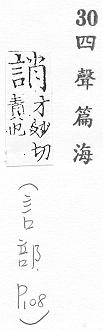 30
四聲篇海
誚
才妙切
責也
（言部 P.108）